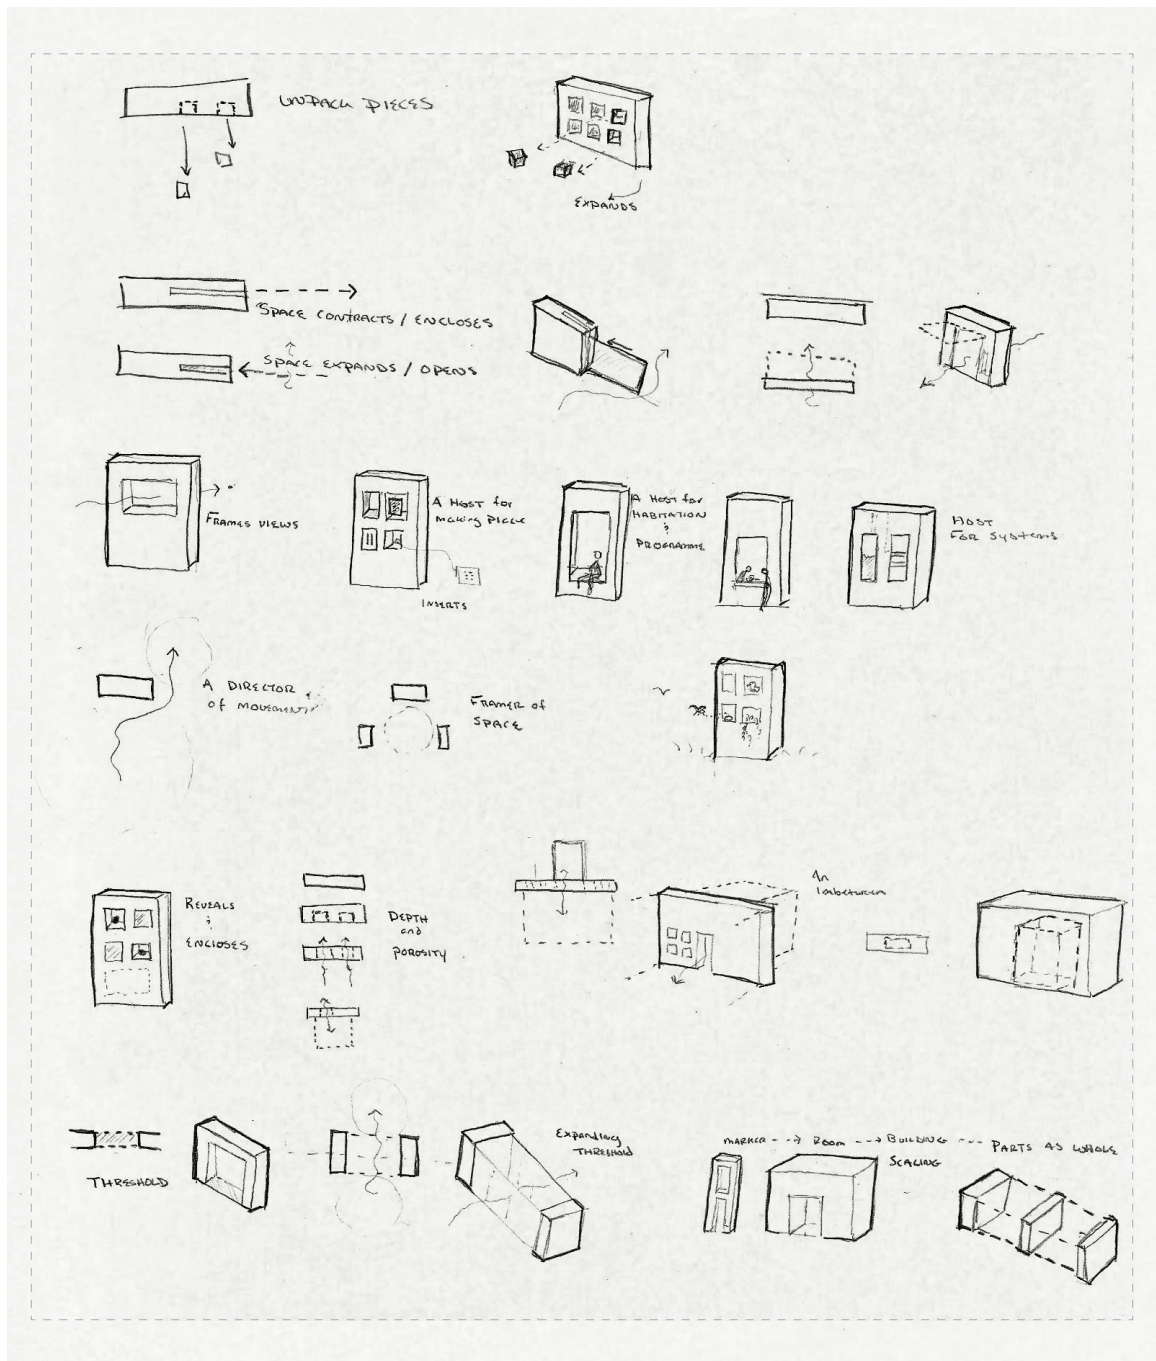 UNPACK PIECES
EXPANDS
SPACE CONTRACTS / ENCLOSES
SPACE EXPANDS / OPENS
FRAMES VIEWS
A HOST for
making PLACE
INSERTS
A HOST for
HABITATION
&
PROGRAMME
HOST
FOR SYSTEMS
A DIRECTOR
of MOVEMENT
FRAMER of
SPACE
REVEALS
&
ENCLOSES
DEPTH
and
POROSITY
An
Inbetween
THRESHOLD
Expanding
THRESHOLD
MARKER --→ ROOM --→ BUILDING --- PARTS AS WHOLE
SCALING